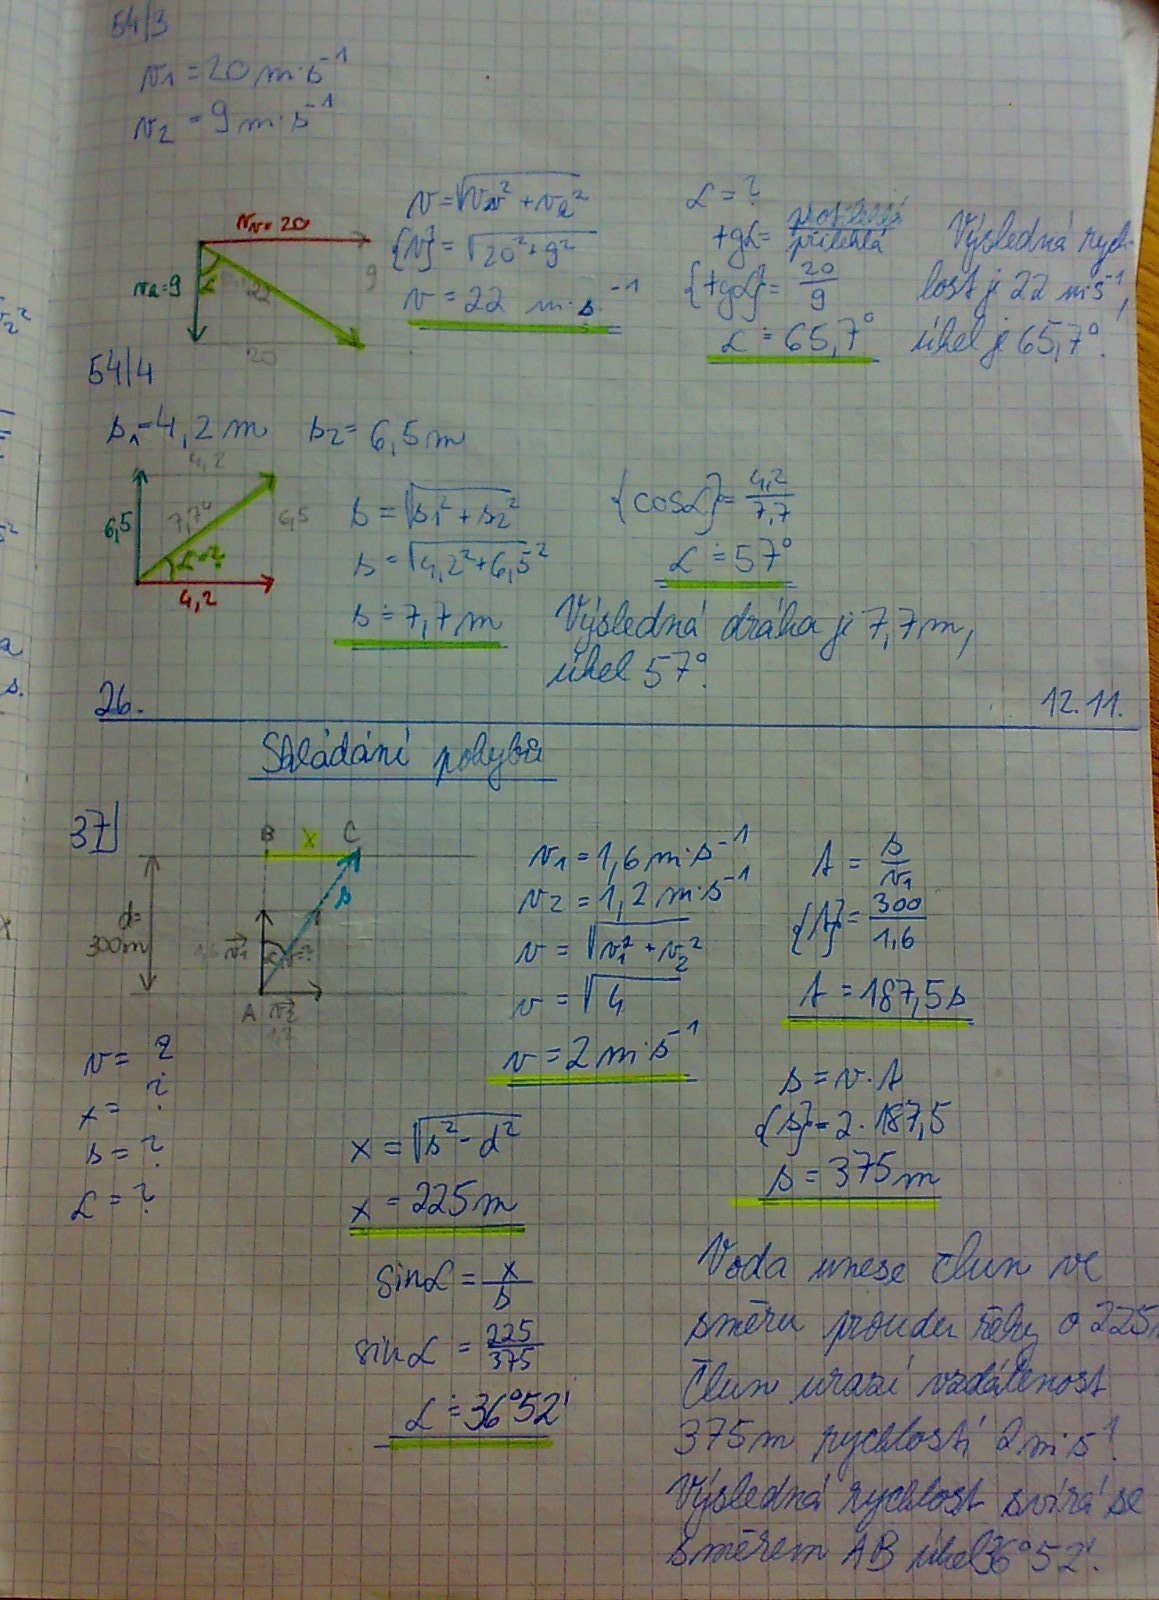 54/3
v₁ = 20 m·s⁻¹
v₂ = 9 m·s⁻¹
v = √(vᵥ² + v₂²)
{v} = √(20² + 9²)
v = 22 m·s⁻¹
α = ?
tgα = protilehlá / přilehlá
{tgα} = 20/9
α ≐ 65,7°
Výsledná rych-
lost je 22 m·s⁻¹,
úhel je 65,7°.
vᵥ = 20
9
α
22
9
20
54/4
s₁ = 4,2 m s₂ = 6,5 m
4,2
6,5
7,74
6,5
α = ?
4,2
s = √(s₁² + s₂²)
s = √(4,2² + 6,5²)
s ≐ 7,7 m
{cosα} = 4,2/7,7
α ≐ 57°
Výsledná dráha je 7,7 m,
úhel 57°.
26. 12. 11.
Skládání pohybů
37)
B x C
s
d =
300m
1,6 v₁ α = ?
A v₂
1,2
v = ?
x = ?
s = ?
α = ?
v₁ = 1,6 m·s⁻¹
v₂ = 1,2 m·s⁻¹
v = √(v₁² + v₂²)
v = √4
v = 2 m·s⁻¹
t = s/v₁
{t} = 300/1,6
t = 187,5 s
s = v·t
{s} = 2·187,5
s = 375 m
x = √(s² - d²)
x = 225 m
sinα = x/s
sinα = 225/375
α ≐ 36°52'
Voda unese člun ve
směru proudu řeky o 225m
Člun urazí vzdálenost
375m rychlostí 2 m·s⁻¹.
Výsledná rychlost svírá se
směrem AB úhel 36°52'.